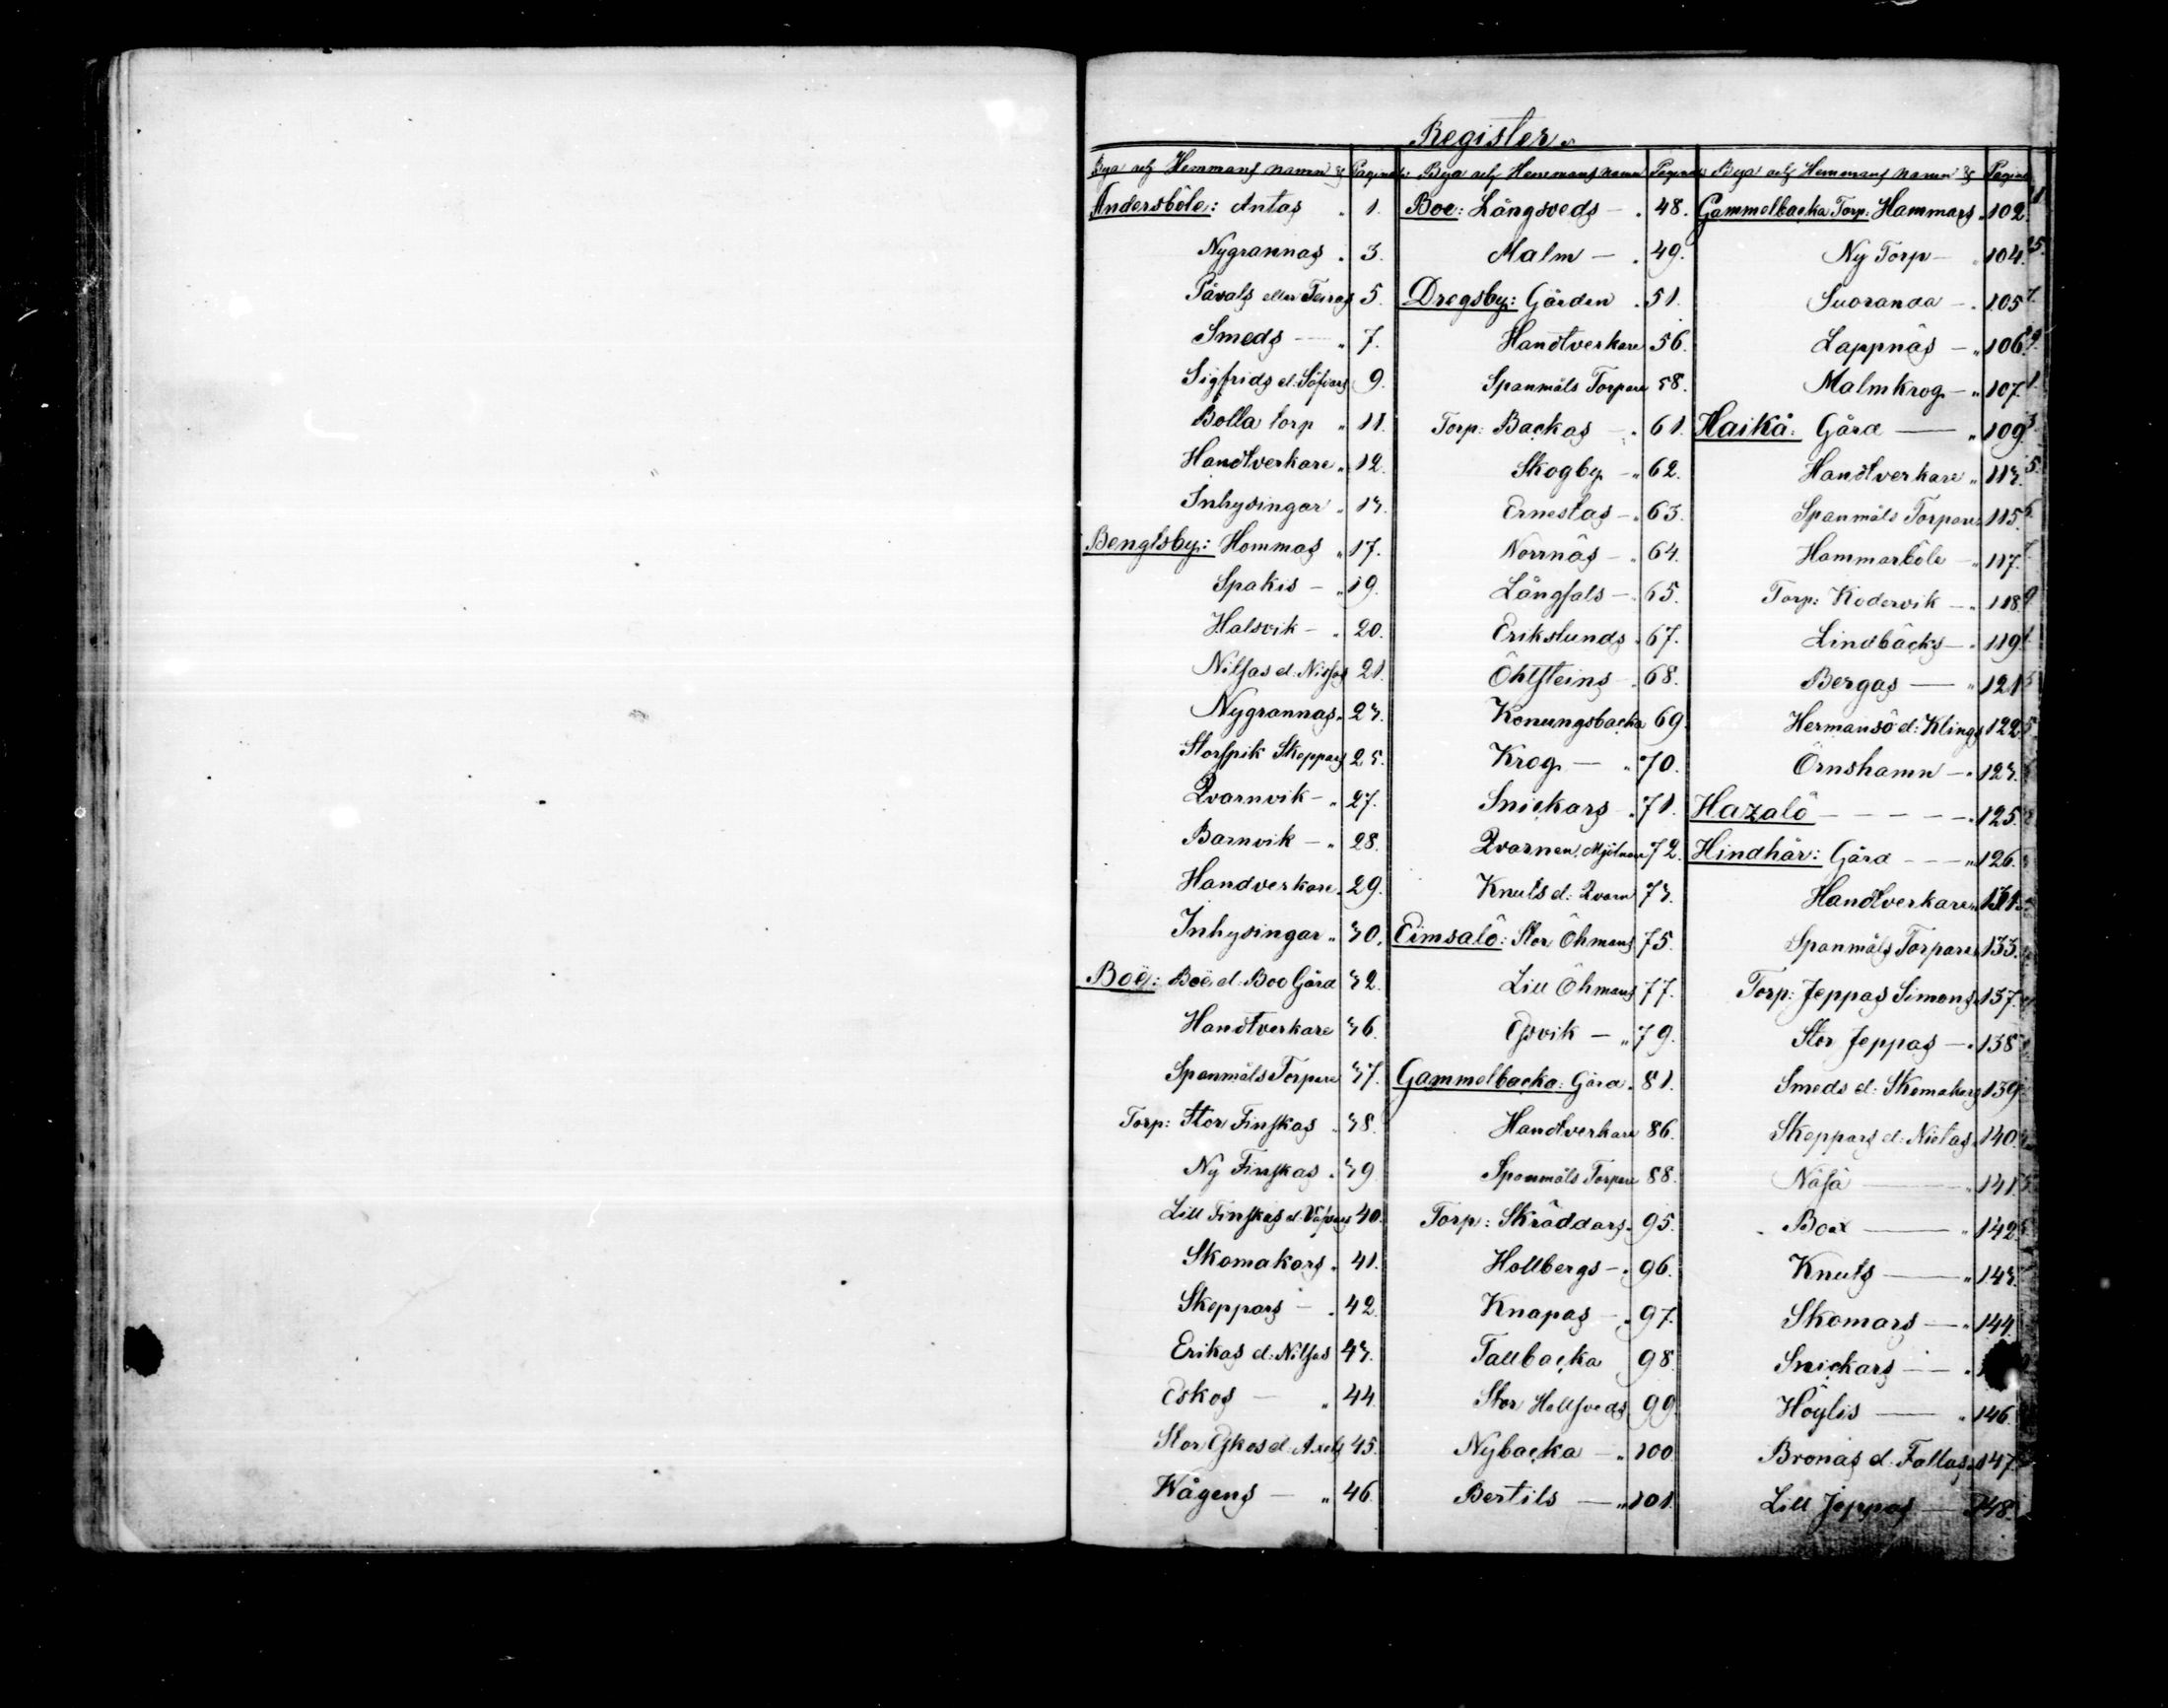 Register
Bya och Hemmans namn & Pagina
Andersböle: Antas " 1.
Nygrannas " 3.
Påvals eller Teiras 5.
Smeds — " 7.
Sigfrids el: 9.
Bolla torp " 11.
Handtverkare " 12.
Inhysingar " 13.
Bengtsby: Hommas " 17.
Spakis — " 19.
Halsvik — " 20.
Nilsas el: Nissas 21.
Nygrannas " 23.
Storspik Skeppars 25.
Qvarnvik — " 27.
Barnvik — " 28.
Handverkare " 29.
Inhysingar " 30.
Boë: Boë el: Boo Gård 32.
Handtverkare 36.
Spanmåls Torpare 37.
Torp: Stor Finskas " 38.
Ny Finskas " 39
Lill Finskas el: 40.
Skomakars " 41.
Skeppars — " 42.
Erikas el: Nilsas 43.
Eskos — " 44.
Stor Eskos el: Axels 45.
Wågens — " 46.
Bya och Hemmans namn Pagina
Boe: Långsveds — " 48.
Malm — " 49.
Dregsby: Gården " 51.
Handtverkare 56.
Spanmåls Torpare 58.
Torp: Backas — " 61.
Skogby — " 62.
Ernestas — " 63.
Norrnäs — " 64.
Långsals — " 65.
Erikslunds " 67.
Öhlsteins " 68.
Konungsbacka 69.
Krog — " 70.
Snickars " 71.
Qvarnen, Mjölnare 72.
Knuts el: Qvarn 73.
Eimsalö: Stor Öhmans 75.
Lill Öhmans 77.
Esvik — " 79.
Gammelbacka: Gård " 81.
Handtverkare 86.
Spanmåls Torpare 88.
Torp: Skräddars " 95.
Hollbergs — " 96.
Knapas — " 97.
Tallbacka 98.
Stor Hellsveds 99.
Nybacka — " 100.
Bertils — " 101.
Bya och Hemmans namn & Pagina
Gammelbacka Torp: Hammars " 102.
Ny Torp — " 104.
Suoranda — " 105
Lappnäs — " 106.
Malmkrog — " 107.
Haikå: Gård — " 109
Handtverkare " 113.
Spanmåls Torpare 115.
Hammarböle — " 117.
Torp: Kodervik — " 118
Lindbäcks — " 119
Bergas — " 121
Hermansö el: Klings 122
Örnshamn — " 123.
Hazalö — — — — " 125.
Hindhår: Gård — — " 126.
Handtverkare " 131.
Spanmåls Torpare 133.
Torp: Jeppas Simons 137.
Stor Jeppas — " 138
Smeds el: Skomakars 139
Skeppars el: Nietas 140.
Näsä — " 141.
Boa — " 142.
Knuts — " 143.
Skomars — " 144.
Snickars — "
Höylis — " 146.
Bronas el: Fallas 147
Lill Jeppas — " 148.